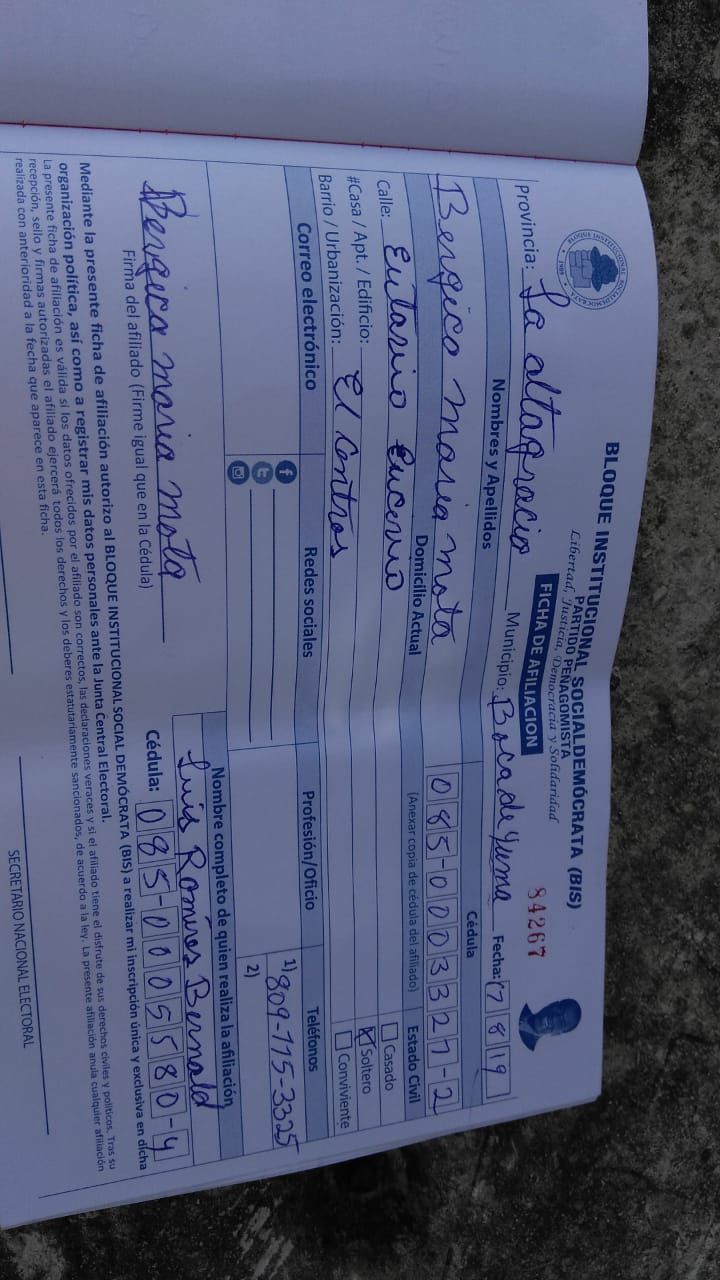 BLOQUE INSTITUCIONAL SOCIALDEMÓCRATA (BIS)
PARTIDO PEÑAGOMISTA
Libertad, Justicia, Democracia y Solidaridad
FICHA DE AFILIACION
84267
BLOQUE INSTITUCIONAL SOCIALDEMOCRATA
1989
provincia: La altagracia Municipio: Boca de yuma Fecha: 17 8 19
Nombres y Apellidos Cédula
Bergica Maria Mota 085-0003327-2
Domicilio Actual (Anexar copia de cédula del afiliado) Estado Civil
Calle: Casado
#Casa / Apt. / Edificio: Soltero
Barrio / Urbanización: El Conviviente
Correo electrónico Redes sociales Profesión/Oficio Teléfonos
1) 809-715-3325
2)
Nombre completo de quien realiza la afiliación
Luis Bernald
Bergica Maria Mota
Firma del afiliado (Firme igual que en la Cédula)
Cédula: 085-0005580-4
Mediante la presente ficha de afiliación autorizo al BLOQUE INSTITUCIONAL SOCIAL DEMÓCRATA (BIS) a realizar mi inscripción única y exclusiva en dicha
organización política, así como a registrar mis datos personales ante la Junta Central Electoral.
La presente ficha de afiliación es válida si los datos ofrecidos por el afiliado son correctos, las declaraciones veraces y si el afiliado tiene el disfrute de sus derechos civiles y políticos. Tras su
recepción, sello y firmas autorizadas el afiliado ejercerá todos los derechos y los deberes estatutariamente sancionados, de acuerdo a la ley. La presente afiliación anula cualquier afiliación
realizada con anterioridad a la fecha que aparece en esta ficha.
SECRETARIO NACIONAL ELECTORAL